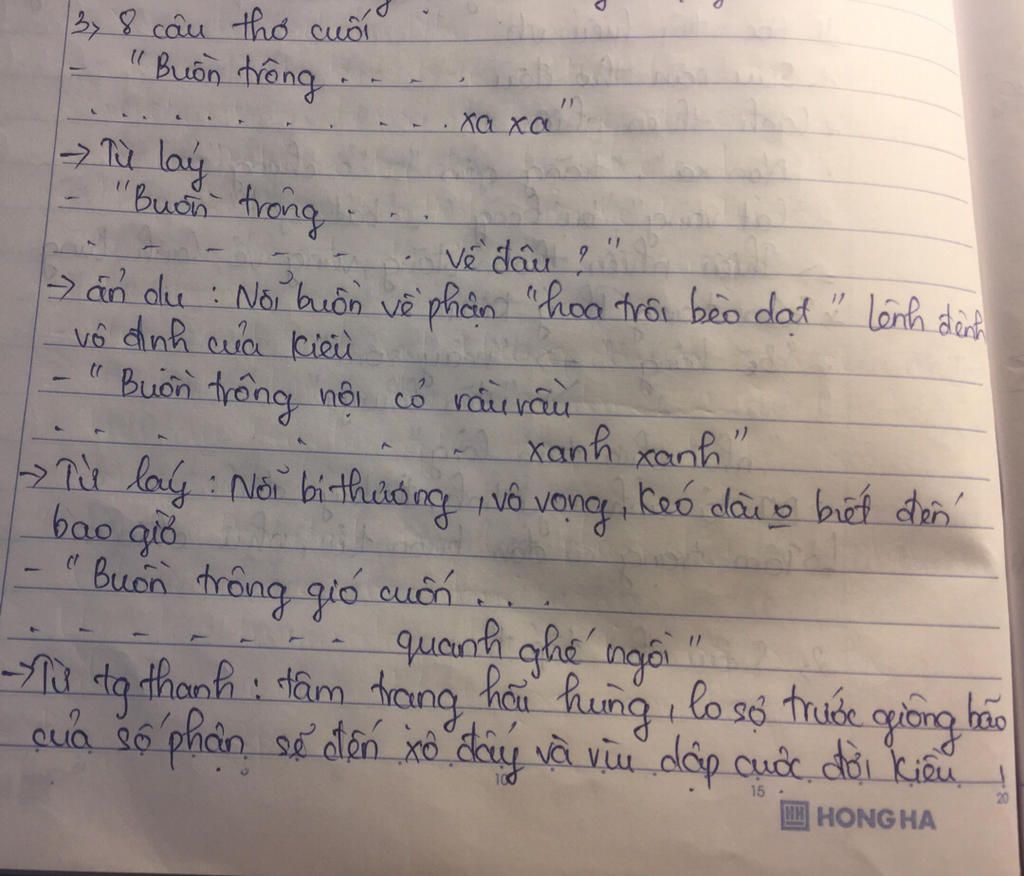 3, 8 câu thơ cuối
- "Buồn trông . . . .
. . . . . . . . . . . . xa xa"
→ Từ láy
- "Buồn trông . . .
. - - - - - . về đâu ?"
→ ẩn dụ : Nỗi buồn về phận "hoa trôi bèo dạt" lênh đênh
vô định của Kiều
- "Buồn trông nội cỏ rầu rầu
. - - . - - xanh xanh"
→ Từ láy : Nỗi bi thương, vô vọng, kéo dài o biết đến
bao giờ
- "Buồn trông gió cuốn . . .
. - - - - - - quanh ghế ngồi"
→ Từ tg thanh : tâm trạng hãi hùng, lo sợ trước giông bão
của số phận sẽ đến xô đẩy và vùi dập cuộc đời Kiều !
10 15 20
HH HONG HA